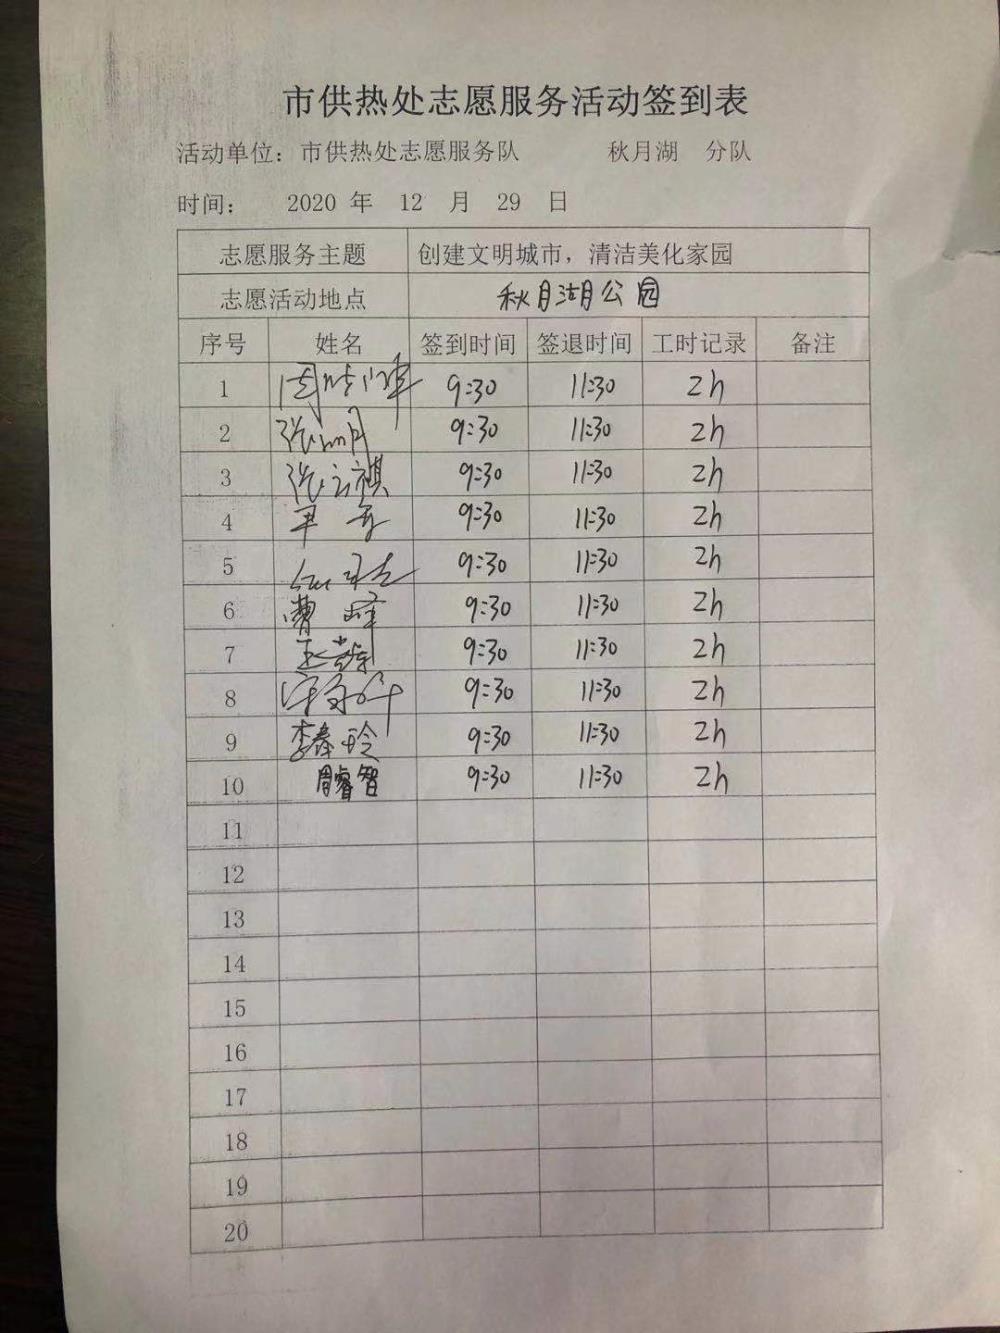 市供热处志愿服务活动签到表
活动单位：市供热处志愿服务队 秋月湖 分队
时间： 2020 年 12 月 29 日
志愿服务主题 创建文明城市，清洁美化家园
志愿活动地点 秋月湖公园
序号 姓名 签到时间 签退时间 工时记录 备注
1 9:30 11:30 2h
2 9:30 11:30 2h
3 张云祺 9:30 11:30 2h
4 9:30 11:30 2h
5 9:30 11:30 2h
6 曹峰 9:30 11:30 2h
7 9:30 11:30 2h
8 9:30 11:30 2h
9 李春玲 9:30 11:30 2h
10 周睿智 9:30 11:30 2h
11
12
13
14
15
16
17
18
19
20